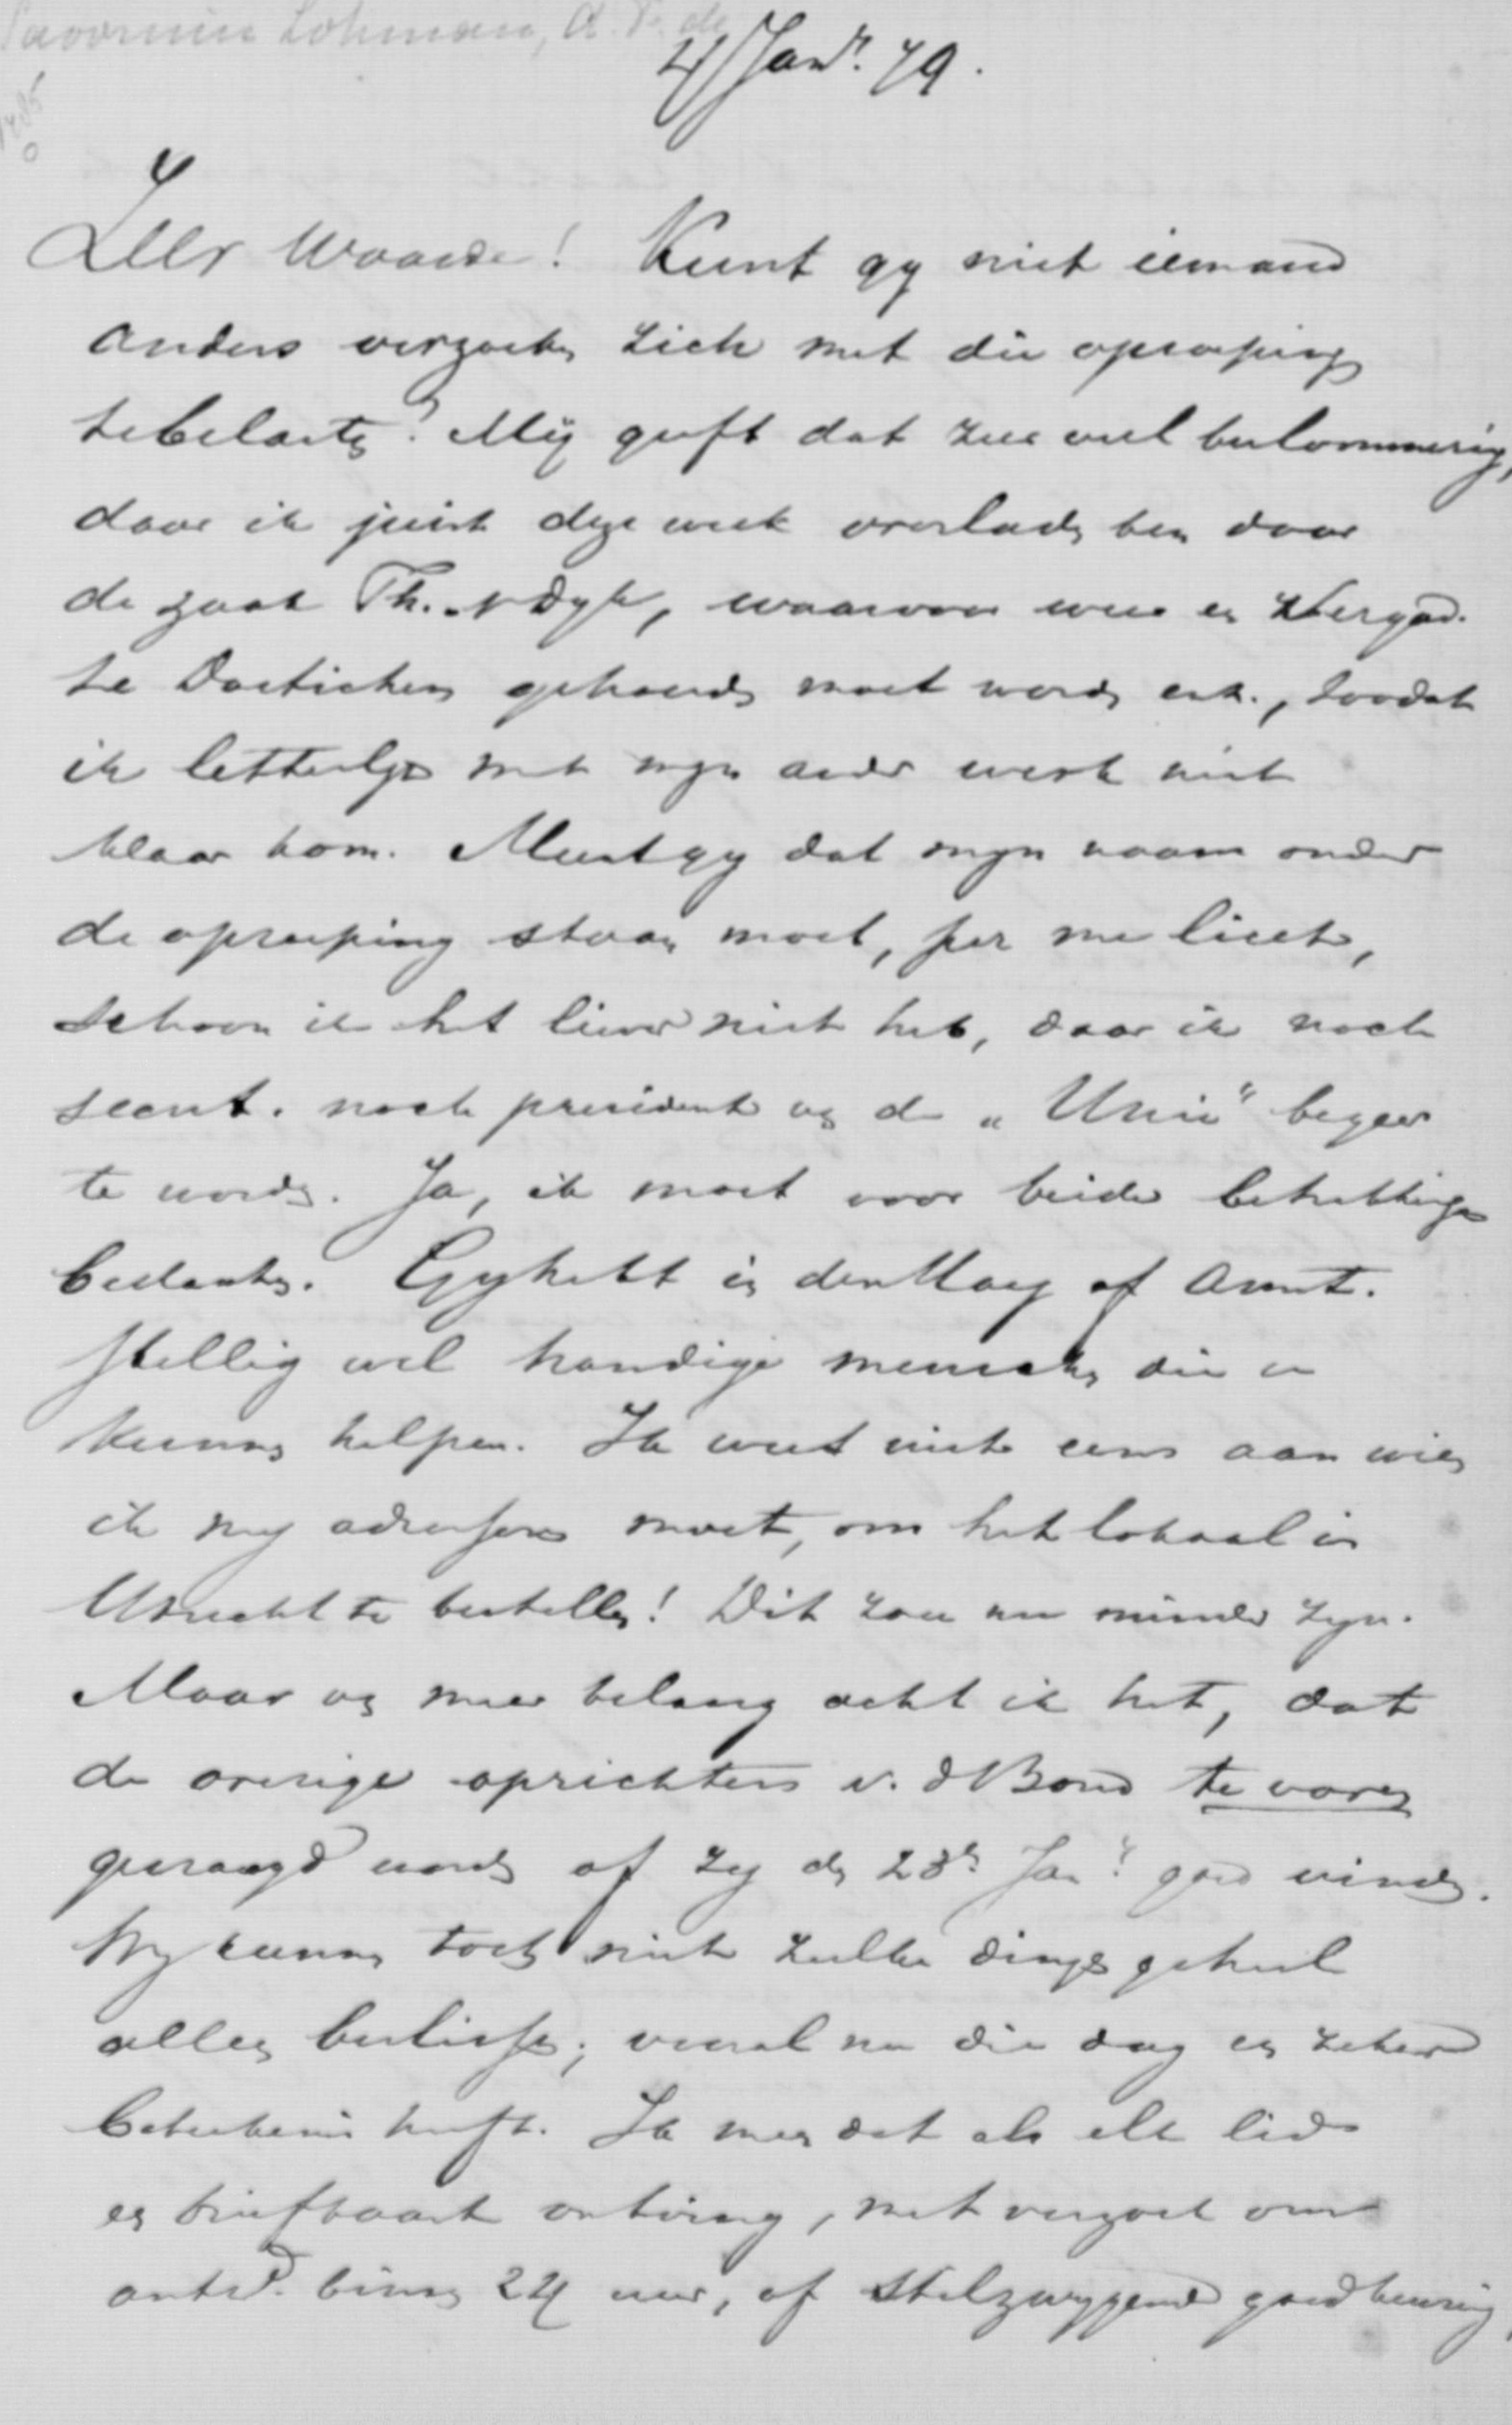 Savornin Lohman, A. F. de
4 Jan. 79.
Zeer Waarde! Kunt gy niet iemand
anders verzoeken zich met die oproeping
te belasten? Mij geeft dat zeer veel belemmering,
daar ik juist deze week overladen ben door
de zaak Th. v Dyk, waarvoor weer een Vergad.
te Doetichem gehouden moet worden enz., zoodat
ik letterlyk met myn ander werk niet
klaar kom. Meent gy dat myn naam onder
de oproeping staan moet, per me licet,
schoon ik het liever niet heb, daar ik noch
secret. noch president van de „Unie" begeer
te worden. Ja, ik moet voor beide betrekkingen
bedanken. Gy hebt in den Haag of Amst.
stellig wel handige menschen die u
kunnen helpen. Ik weet niet eens aan wien
ik my adresseren moet, om het lokaal in
Utrecht te bestellen! Dit zou nu minder zyn.
Maar van meer belang acht ik het, dat
de overige oprichters v. d Bond te voren
gevraagd worden of zy den 23n Jan. goed vinden.
Wy kunnen toch niet zulke dingen geheel
alleen beslissen; vooral nu die dag een zekere
beteekenis heeft. Ik meen dat als elk lid
een briefkaart ontving, met verzoek om
antwd. binnen 24 uur, of stilzwygend goedkeuring,